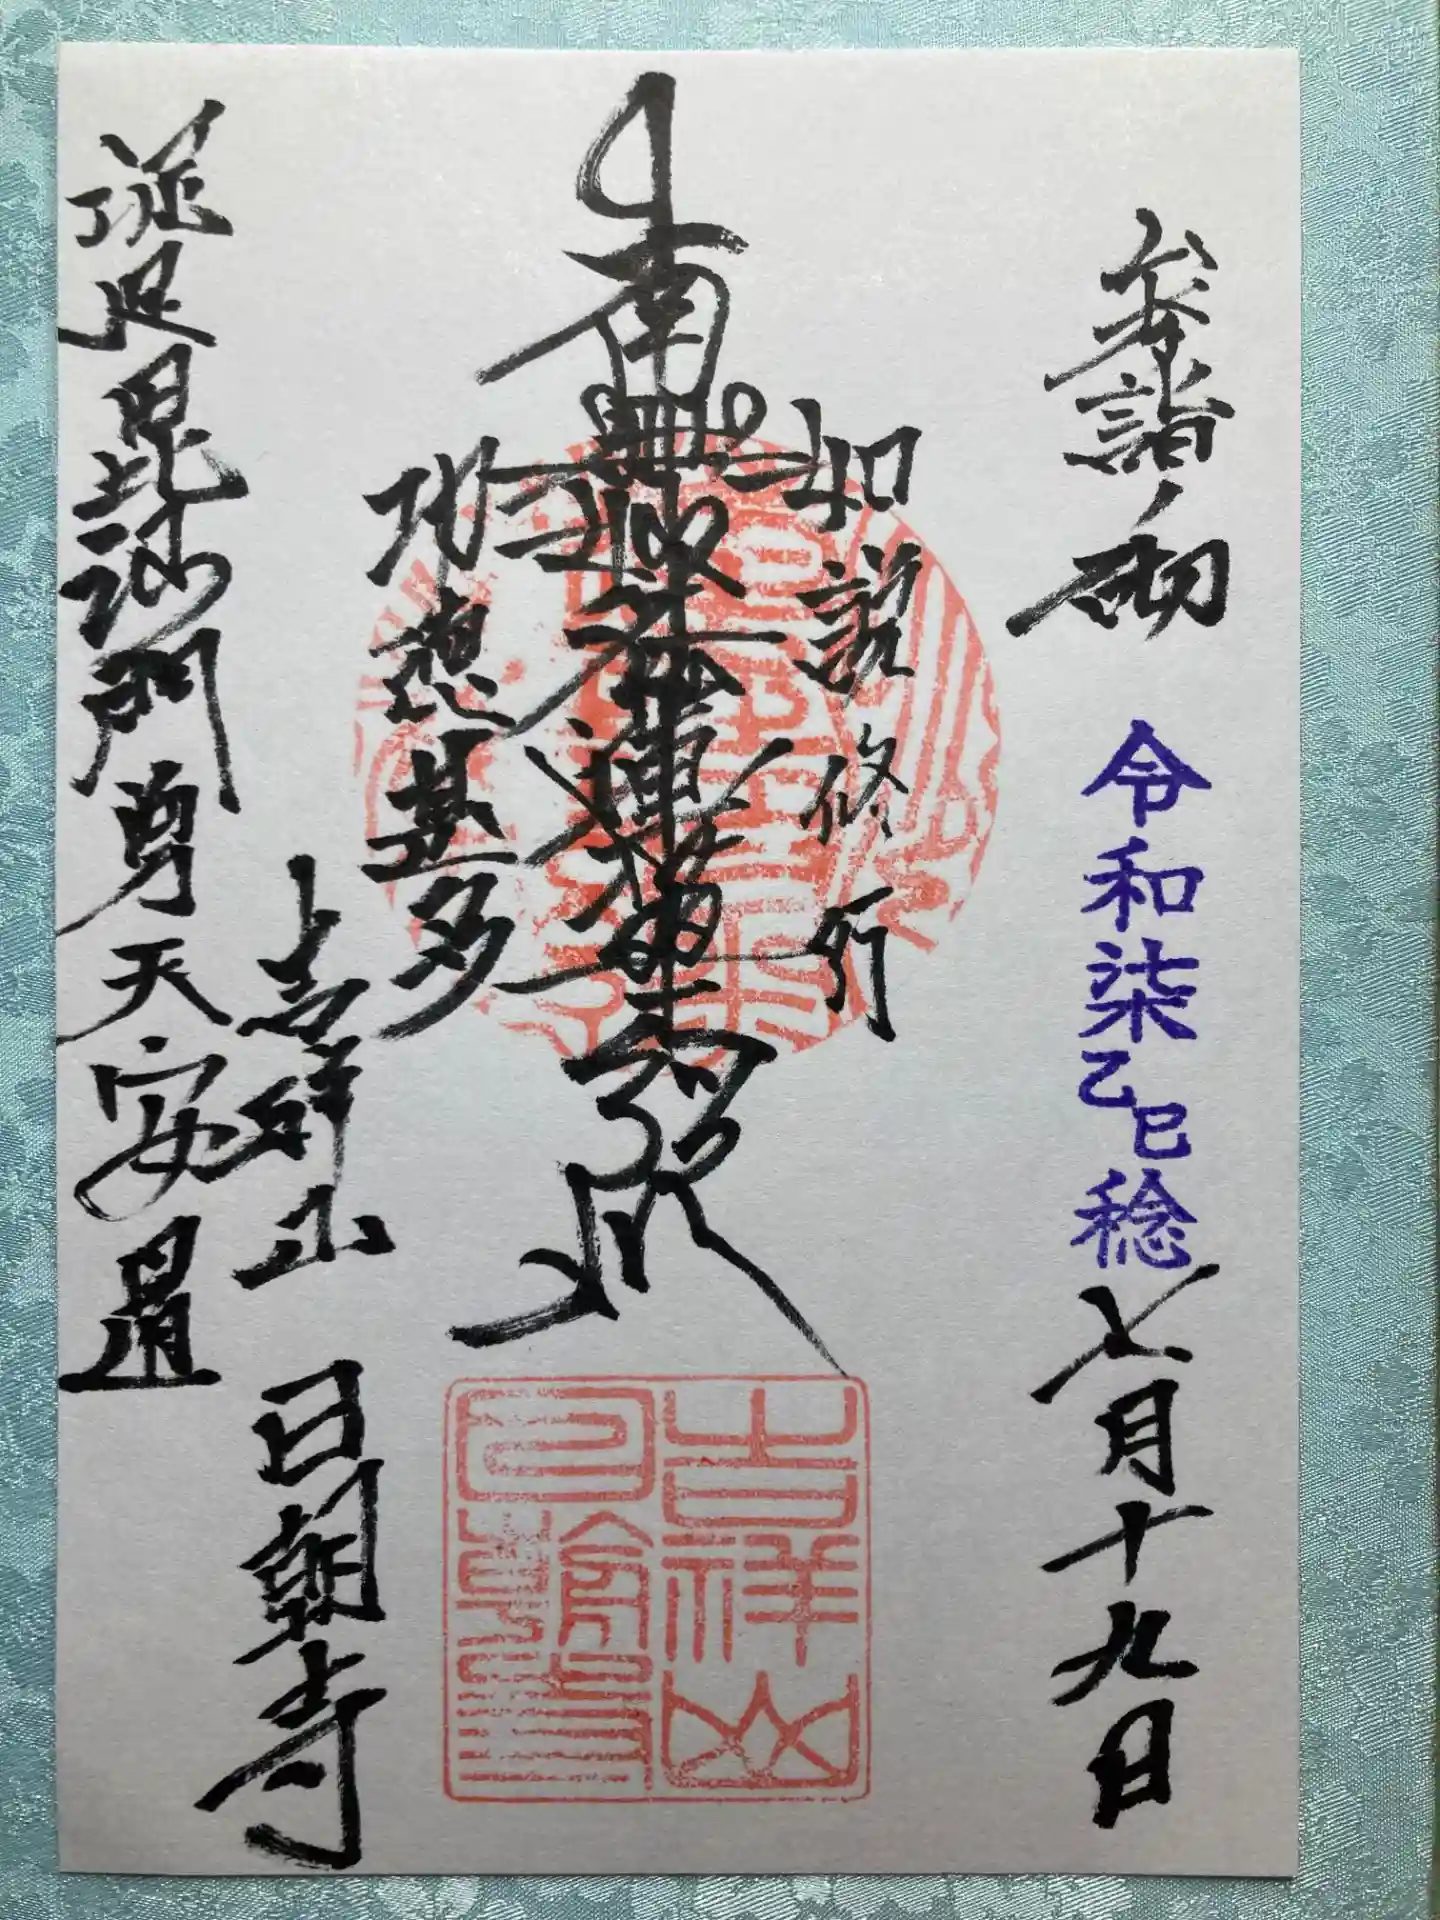 参詣ノ砌 令和柒乙巳稔七月十九日
如説修行
南無妙法蓮華経
功徳甚多
吉祥山 日朝寺
足毘沙門尊天安置
吉祥山